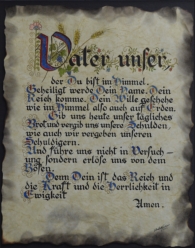 Vater unser,
der Du bist im Himmel.
Geheiligt werde Dein Name. Dein
Reich komme. Dein Wille geschehe
wie im Himmel also auch auf Erden.
Gib uns heute unser tägliches
Brot und vergib uns unsere Schulden,
wie auch wir vergeben unseren
Schuldigern.
Und führe uns nicht in Versuch-
ung sondern erlöse uns von dem
Bösen.
Denn Dein ist das Reich und
die Kraft und die Herrlichkeit in
Ewigkeit
Amen.